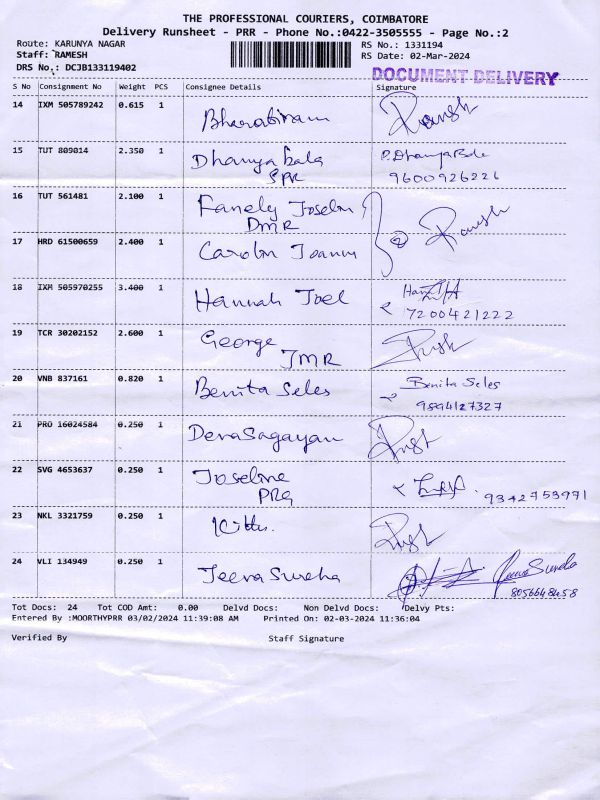 THE PROFESSIONAL COURIERS, COIMBATORE
Delivery Runsheet - PRR - Phone No.:0422-3505555 - Page No.:2
Route: KARUNYA NAGAR RS No.: 1331194
Staff: RAMESH RS Date: 02-Mar-2024
DRS No.: DCJB133119402
DOCUMENT DELIVERY
S No Consignment No Weight PCS Consignee Details Signature
14 IXM 505789242 0.615 1 Ramesh
15 TUT 809814 2.350 1 Dhanya bala P. Dhanya Bala
SPR 9600926226
16 TUT 561481 2.100 1
DMR Ramesh
17 HRD 61500659 2.400 1 Carolin
18 IXM 505970255 3.400 1 Hannah Joel
7200421222
19 TCR 30202152 2.600 1 George
JMR
20 VNB 837161 0.820 1 Benita Seles Benita Seles
9894127327
21 PRO 16024584 0.250 1 Devasagayan
22 SVG 4653637 0.250 1 Joseline
PRG 9342753971
23 NKL 3321759 0.250 1
24 VLI 134949 0.250 1 Jeeva Sundha
8056648458
Tot Docs: 24 Tot COD Amt: 0.00 Delvd Docs: Non Delvd Docs: Delvy Pts:
Entered By :MOORTHYPRR 03/02/2024 11:39:08 AM Printed On: 02-03-2024 11:36:04
Verified By Staff Signature